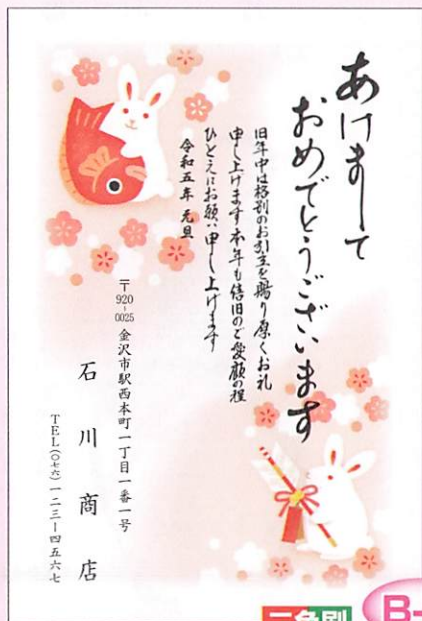 あけまして
おめでとうございます
旧年中は格別のお引立を賜り厚くお礼
申し上げます本年も倍旧のご愛顧の程
ひとえにお願い申し上げます
令和五年 元旦
〒920-0025 金沢市駅西本町一丁目一番一号
石川商店
TEL(〇七六)一二三ー四五六七
B-